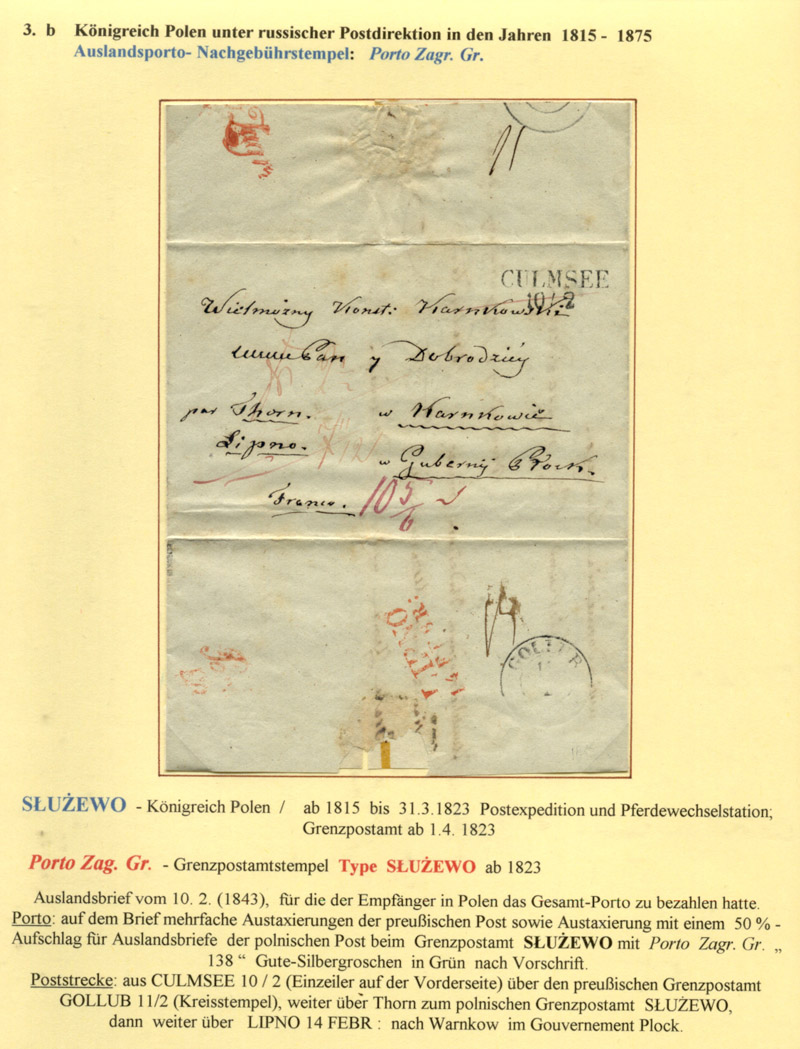 3. b Königreich Polen unter russischer Postdirektion in den Jahren 1815 - 1875
Auslandsporto- Nachgebührstempel: Porto Zagr. Gr.
CULMSEE
10 / 2
Wielmożny Konst: Karnkowski
Pan y Dobrodziéy
par Thorn. w Karnkowie
Lipno. w Guberniy Płock.
Franco. 10 5/6
GOLLUB
SŁUŻEWO - Königreich Polen / ab 1815 bis 31.3.1823 Postexpedition und Pferdewechselstation;
Grenzpostamt ab 1.4. 1823
Porto Zag. Gr. - Grenzpostamtstempel Type SŁUŻEWO ab 1823
Auslandsbrief vom 10. 2. (1843), für die der Empfänger in Polen das Gesamt-Porto zu bezahlen hatte.
Porto: auf dem Brief mehrfache Austaxierungen der preußischen Post sowie Austaxierung mit einem 50 % -
Aufschlag für Auslandsbriefe der polnischen Post beim Grenzpostamt SŁUŻEWO mit Porto Zagr. Gr. „
138 “ Gute-Silbergroschen in Grün nach Vorschrift.
Poststrecke: aus CULMSEE 10 / 2 (Einzeiler auf der Vorderseite) über den preußischen Grenzpostamt
GOLLUB 11/2 (Kreisstempel), weiter über Thorn zum polnischen Grenzpostamt SŁUŻEWO,
dann weiter über LIPNO 14 FEBR : nach Warnkow im Gouvernement Plock.